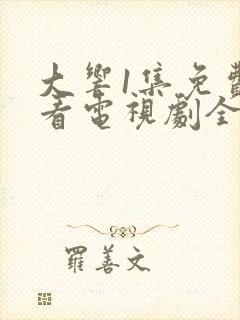 大響1集免費
看電視劇全
羅善文